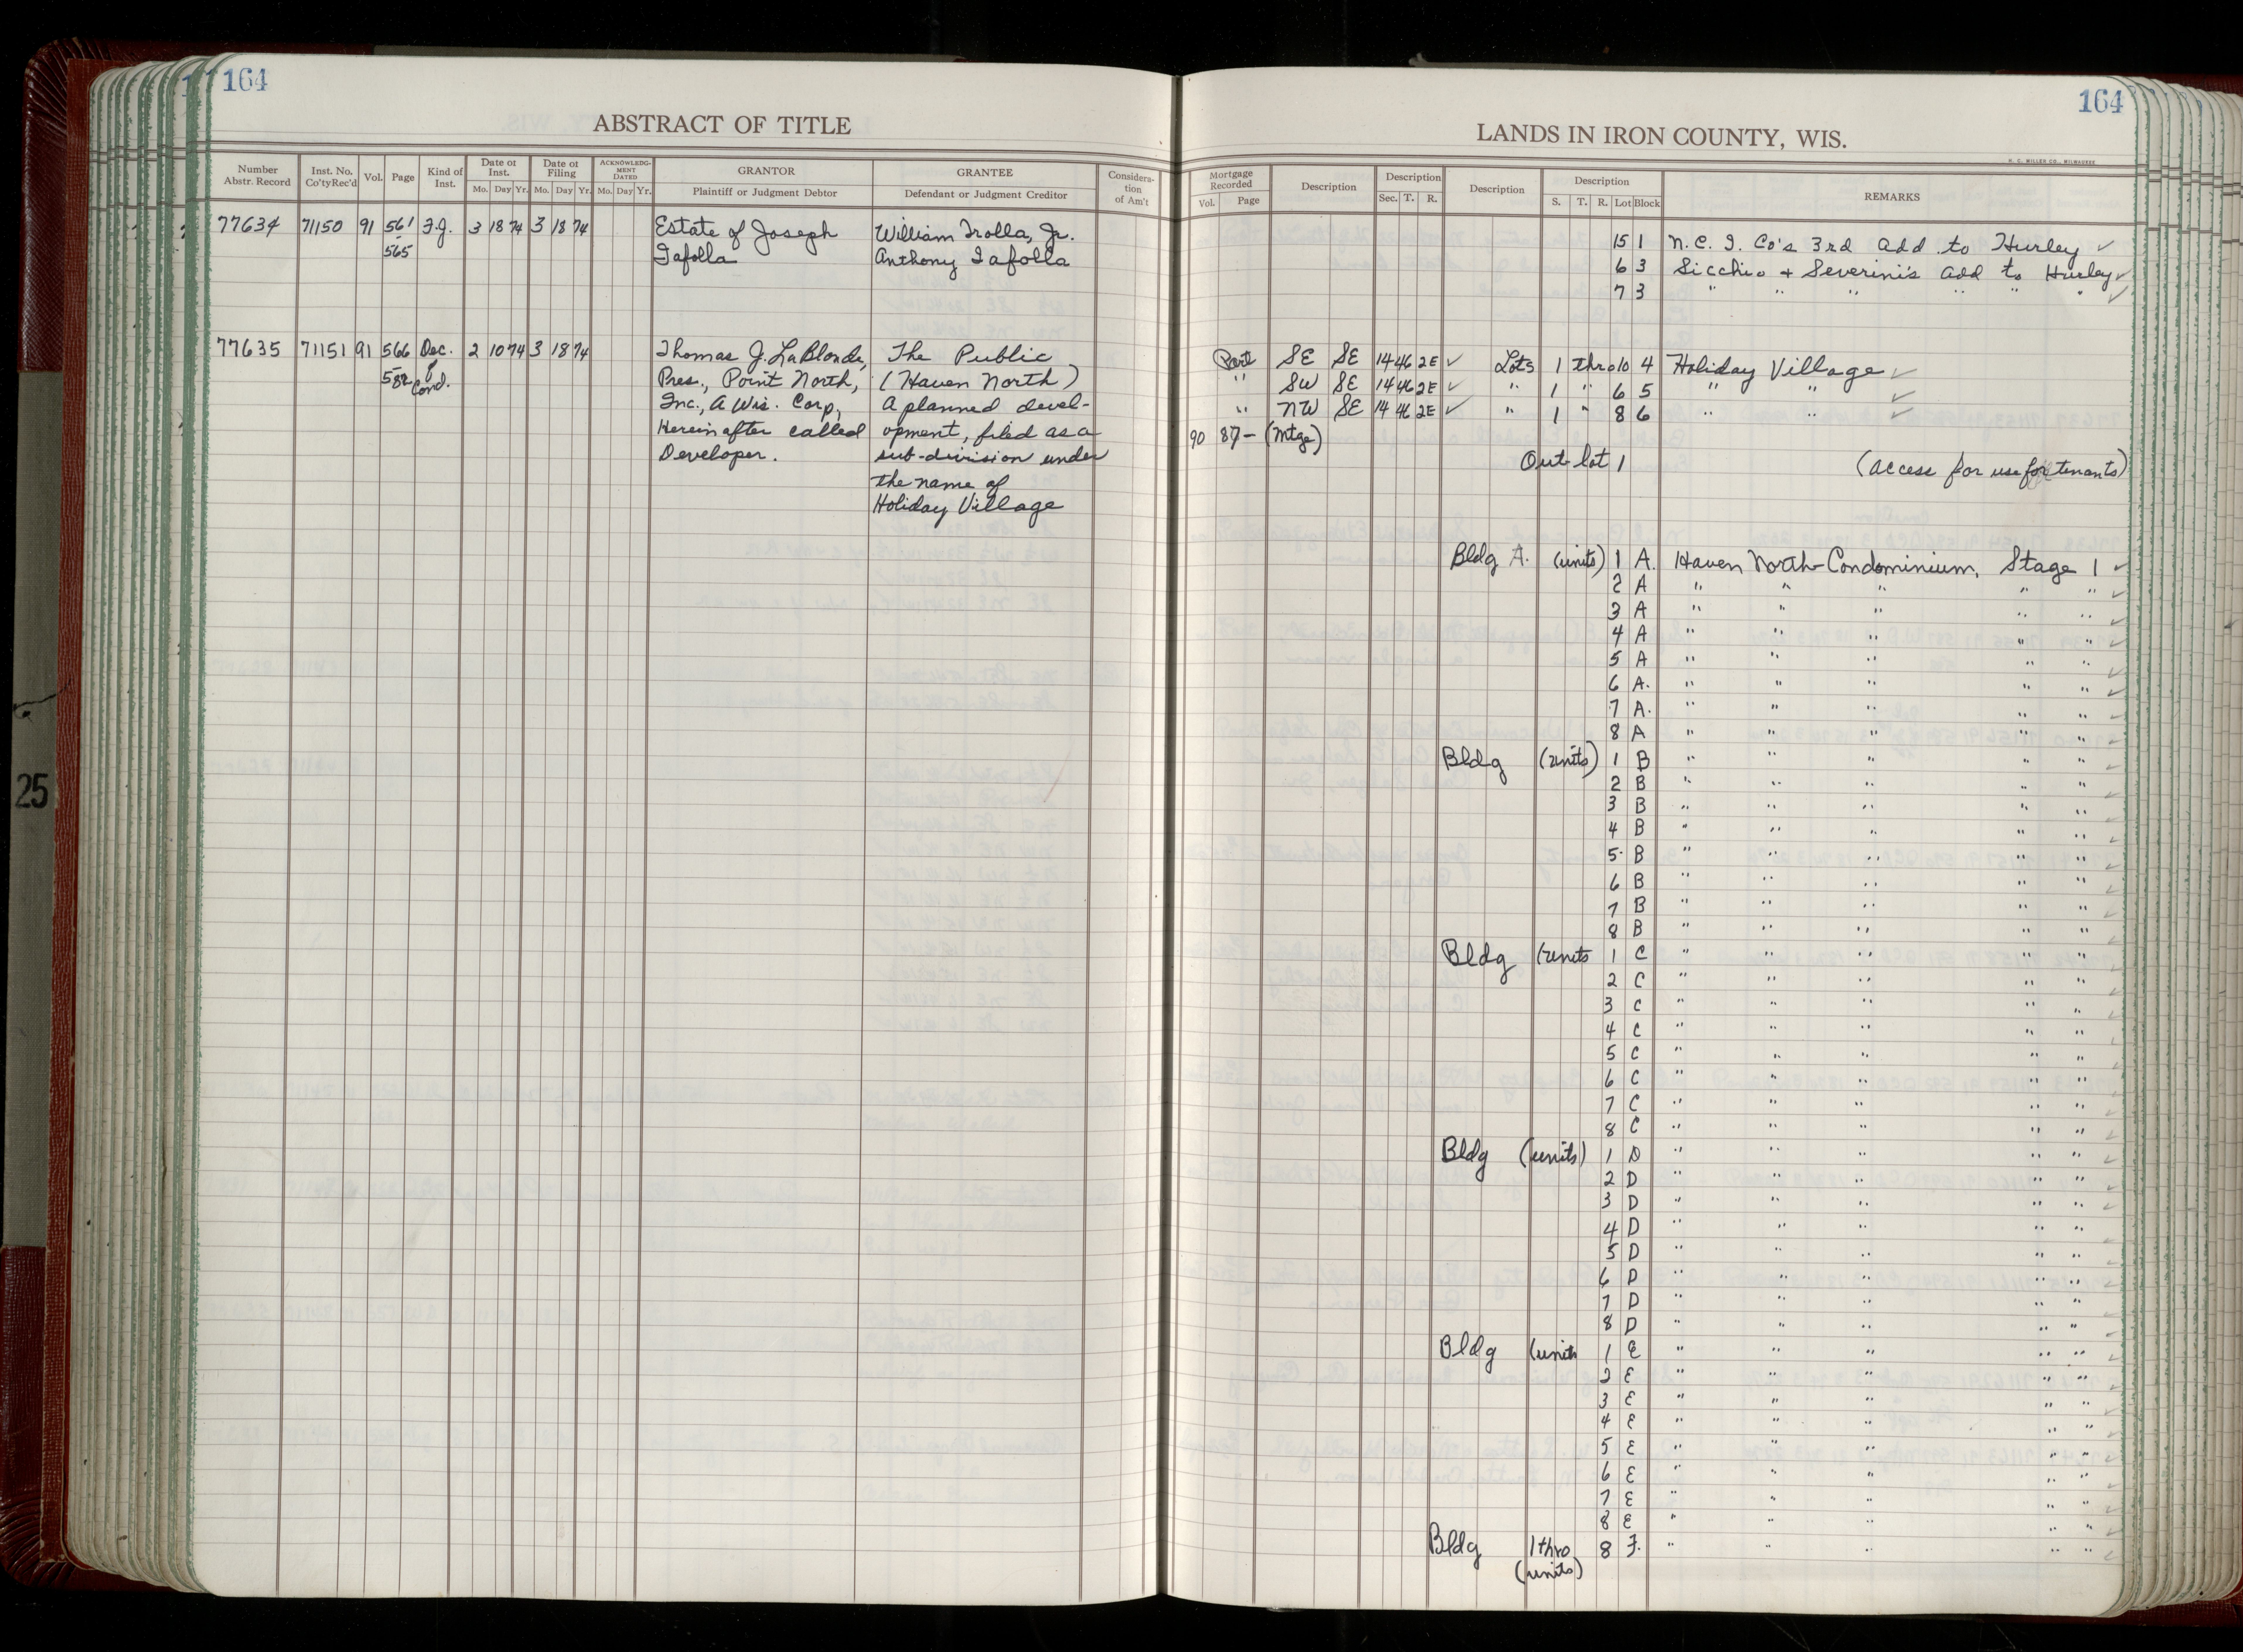 164
ABSTRACT OF TITLE
Number Abstr. Record
Inst. No. Co'tyRec'd
Vol.
Page
Kind of Inst.
Date of Inst.
Mo. Day Yr.
Date of Filing
Mo. Day Yr.
ACKNOWLEDGMENT DATED
Mo. Day Yr.
GRANTOR
Plaintiff or Judgment Debtor
GRANTEE
Defendant or Judgment Creditor
Consideration of Am't
77634 71150 91 561 F.J. 3 18 74 3 18 74 Estate of Joseph William Trolla, Jr.
565 Iafolla Anthony Iafolla
77635 71151 91 566 Dec. 2 10 74 3 18 74 Thomas J. LaBlonde, The Public
582 of Cond. Pres., Point North, (Haven North)
Inc., A Wis. Corp., A planned devel-
Hereinafter called opment, filed as a
Developer. sub-division under
the name of
Holiday Village
25
164
LANDS IN IRON COUNTY, WIS.
H. C. MILLER CO., MILWAUKEE
Mortgage Recorded
Vol. Page
Description
Description
Sec. T. R.
Description
Description
S. T. R. Lot Block
REMARKS
15 1 N.C.I. Co's 3rd Add. to Hurley ✓
6 3 Sicchio & Severini's Add to Hurley ✓
7 3 " " " " " " ✓
Part SE SE 14 46 2E ✓ Lots 1 thro 10 4 Holiday Village ✓
" SW SE 14 46 2E ✓ " 1 " 6 5 " " ✓
" NW SE 14 46 2E ✓ " 1 " 8 6 " " ✓
90 87 - (Mtge)
Out lot 1 (access for use for tenants)
Bldg A. (units) 1 A. Haven North-Condominium, Stage 1 ✓
2 A " " " " " ✓
3 A " " " " " ✓
4 A " " " " " ✓
5 A " " " " " ✓
6 A. " " " " " ✓
7 A. " " " " " ✓
8 A " " " " " ✓
Bldg (units) 1 B " " " " " ✓
2 B " " " " " ✓
3 B " " " " " ✓
4 B " " " " " ✓
5 B " " " " " ✓
6 B " " " " " ✓
7 B " " " " " ✓
8 B " " " " " ✓
Bldg (units 1 C " " " " " ✓
2 C " " " " " ✓
3 C " " " " " ✓
4 C " " " " " ✓
5 C " " " " " ✓
6 C " " " " " ✓
7 C " " " " " ✓
8 C " " " " " ✓
Bldg (units) 1 D " " " " " ✓
2 D " " " " " ✓
3 D " " " " " ✓
4 D " " " " " ✓
5 D " " " " " ✓
6 D " " " " " ✓
7 D " " " " " ✓
8 D " " " " " ✓
Bldg (units 1 E " " " " " ✓
2 E " " " " " ✓
3 E " " " " " ✓
4 E " " " " " ✓
5 E " " " " " ✓
6 E " " " " " ✓
7 E " " " " " ✓
8 E " " " " " ✓
Bldg 1 thro 8 F. " " " " " ✓
(units)